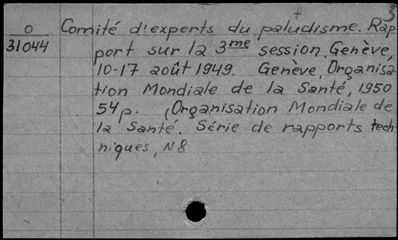 O
31044
Comité d'experts du paludisme. Rap
port sur la 3me session Genève,
10-17 août 1949. Genève, Organisa
tion Mondiale de la Santé, 1950
54p. (Organisation Mondiale de
la Santé. Série de rapports tech
niques, N8